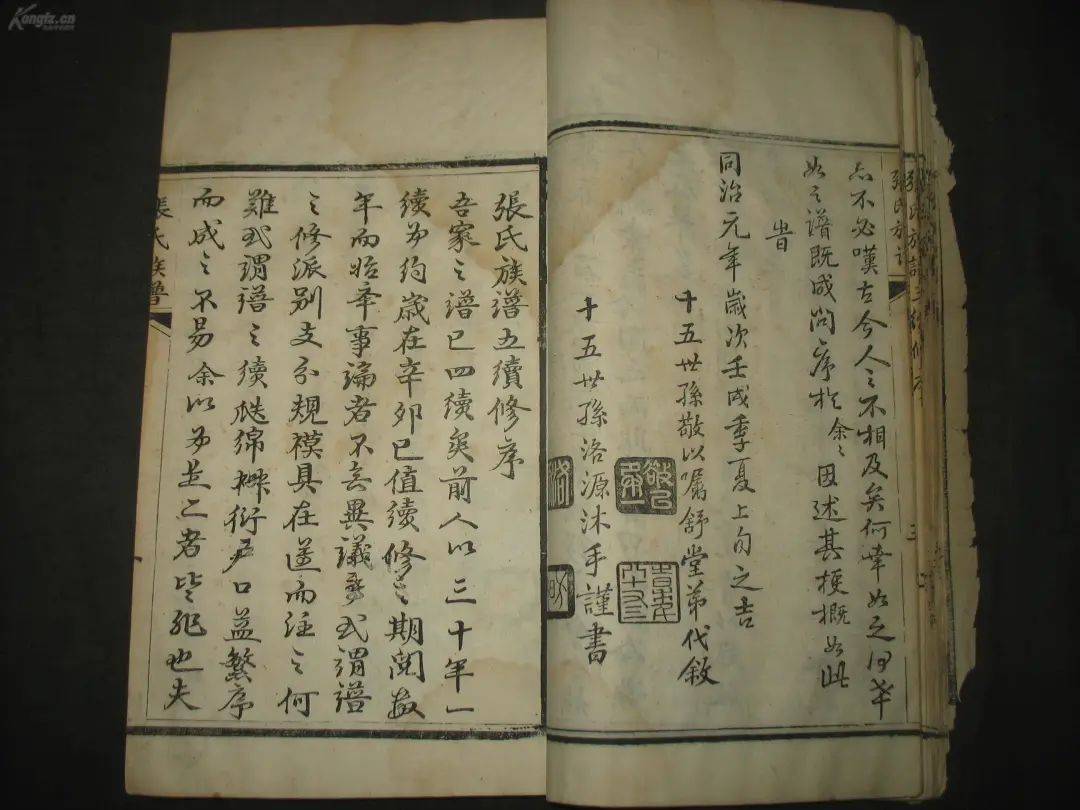 Kongfz.cn
張氏族譜
亦不必嘆古今人之不相及矣何幸如之日
如之譜既成問序於余余因述其梗概如此
旹
同治元年歲次壬戌季夏上旬之吉
十五世孫敬以囑舒堂弟代敘
十五世孫洛源沐手謹書
張氏族譜五續修序
吾家之譜已四續矣前人以三十年一
續為約歲在辛卯已值續修之期閱數
年而始舉事論者不無異議或謂譜
之修派別支分規模具在遵而註之何
難或謂譜之續瓞綿椒衍戶口益繁序
而成之不易余以為是二者皆非也夫
張氏族譜